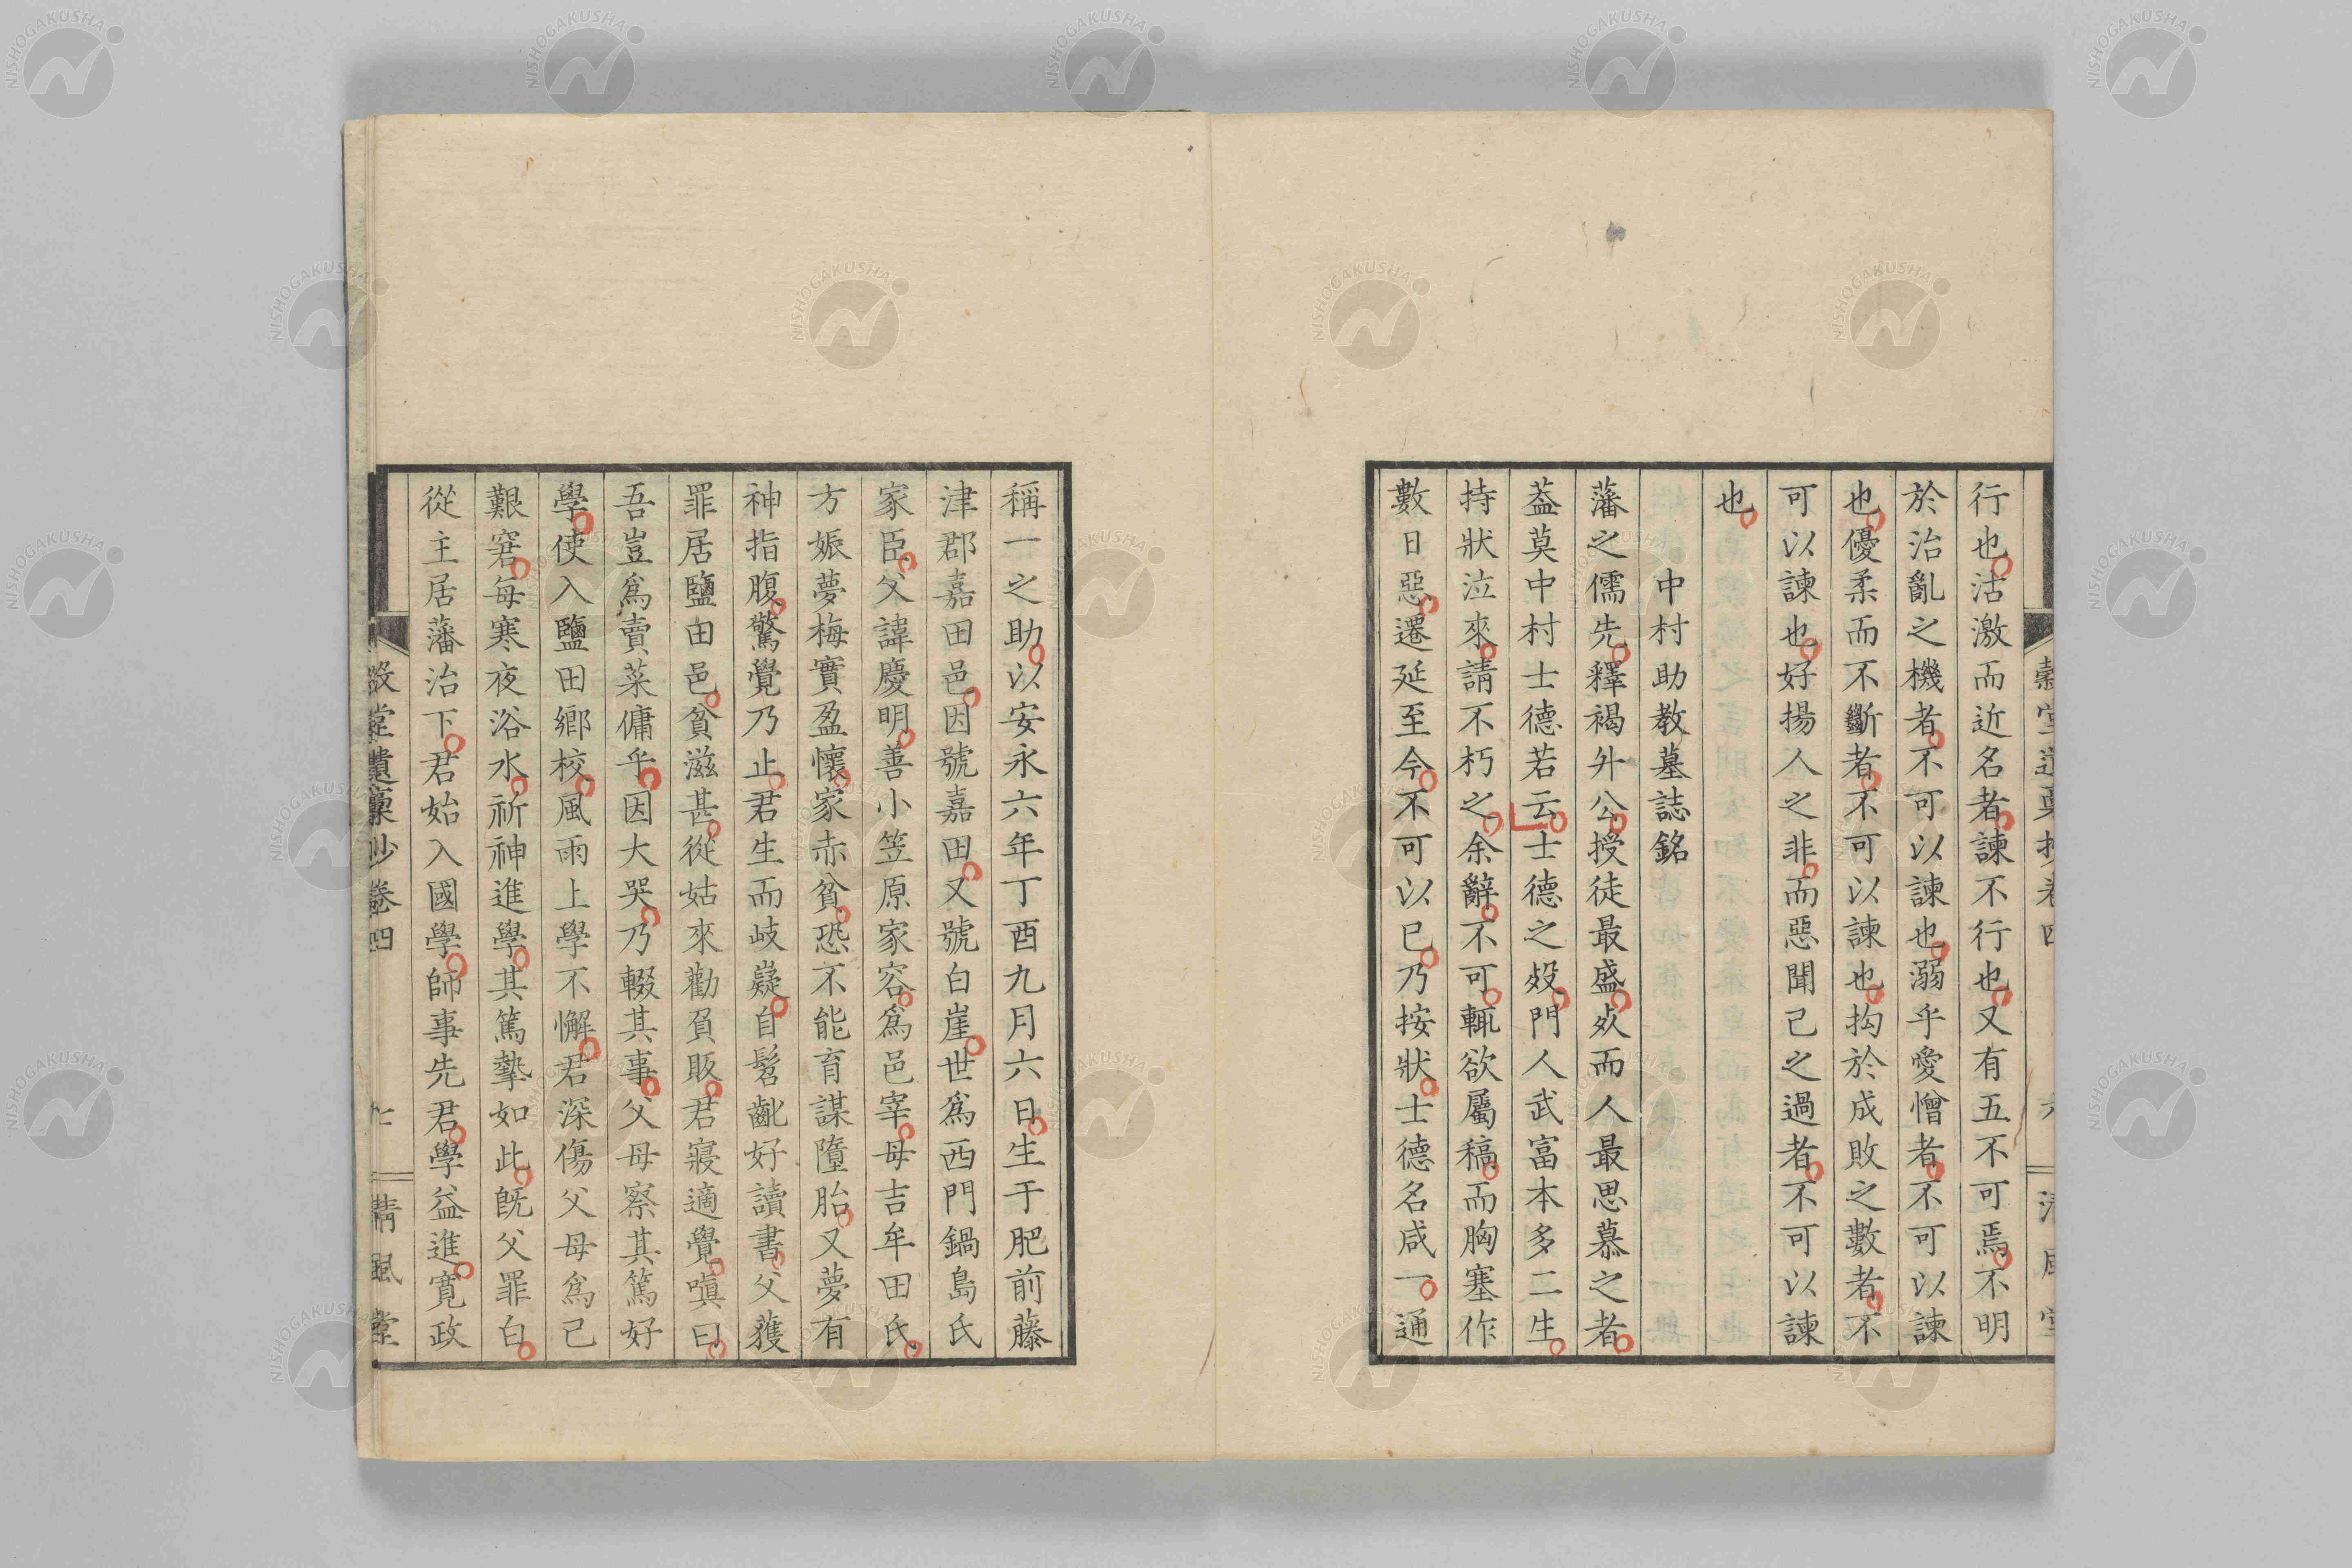 行也沽激而近名者諫不行也又有五不可焉不明
於治亂之機者不可以諫也溺乎愛憎者不可以諫
也優柔而不斷者不可以諫也拘於成敗之數者不
可以諫也好揚人之非而惡聞己之過者不可以諫
也
中村助教墓誌銘
藩之儒先釋褐外公授徒最盛歿而人最思慕之者
葢莫中村士德若云士德之歿門人武富本多二生
持狀泣來請不朽之余辭不可輒欲屬稿而胸塞作
數日惡遷延至今不可以已乃按狀士德名咸一通
稱一之助以安永六年丁酉九月六日生于肥前藤
津郡嘉田邑因號嘉田又號白崖世爲西門鍋島氏
家臣父諱慶明善小笠原家容爲邑宰母吉牟田氏
方娠夢梅實盈懷家赤貧恐不能育謀墮胎又夢有
神指腹驚覺乃止君生而岐嶷自髫齔好讀書父獲
罪居鹽田邑貧滋甚從姑來勸負販君寢適覺嗔曰
吾豈爲賣菜傭乎因大哭乃輟其事父母察其篤好
學使入鹽田鄉校風雨上學不懈君深傷父母爲己
艱窘每寒夜浴水祈神進學其篤摯如此既父罪白
從主居藩治下君始入國學師事先君學益進寬政
堂遺稾抄卷四
七
清風堂
NISHOGAKUSHA